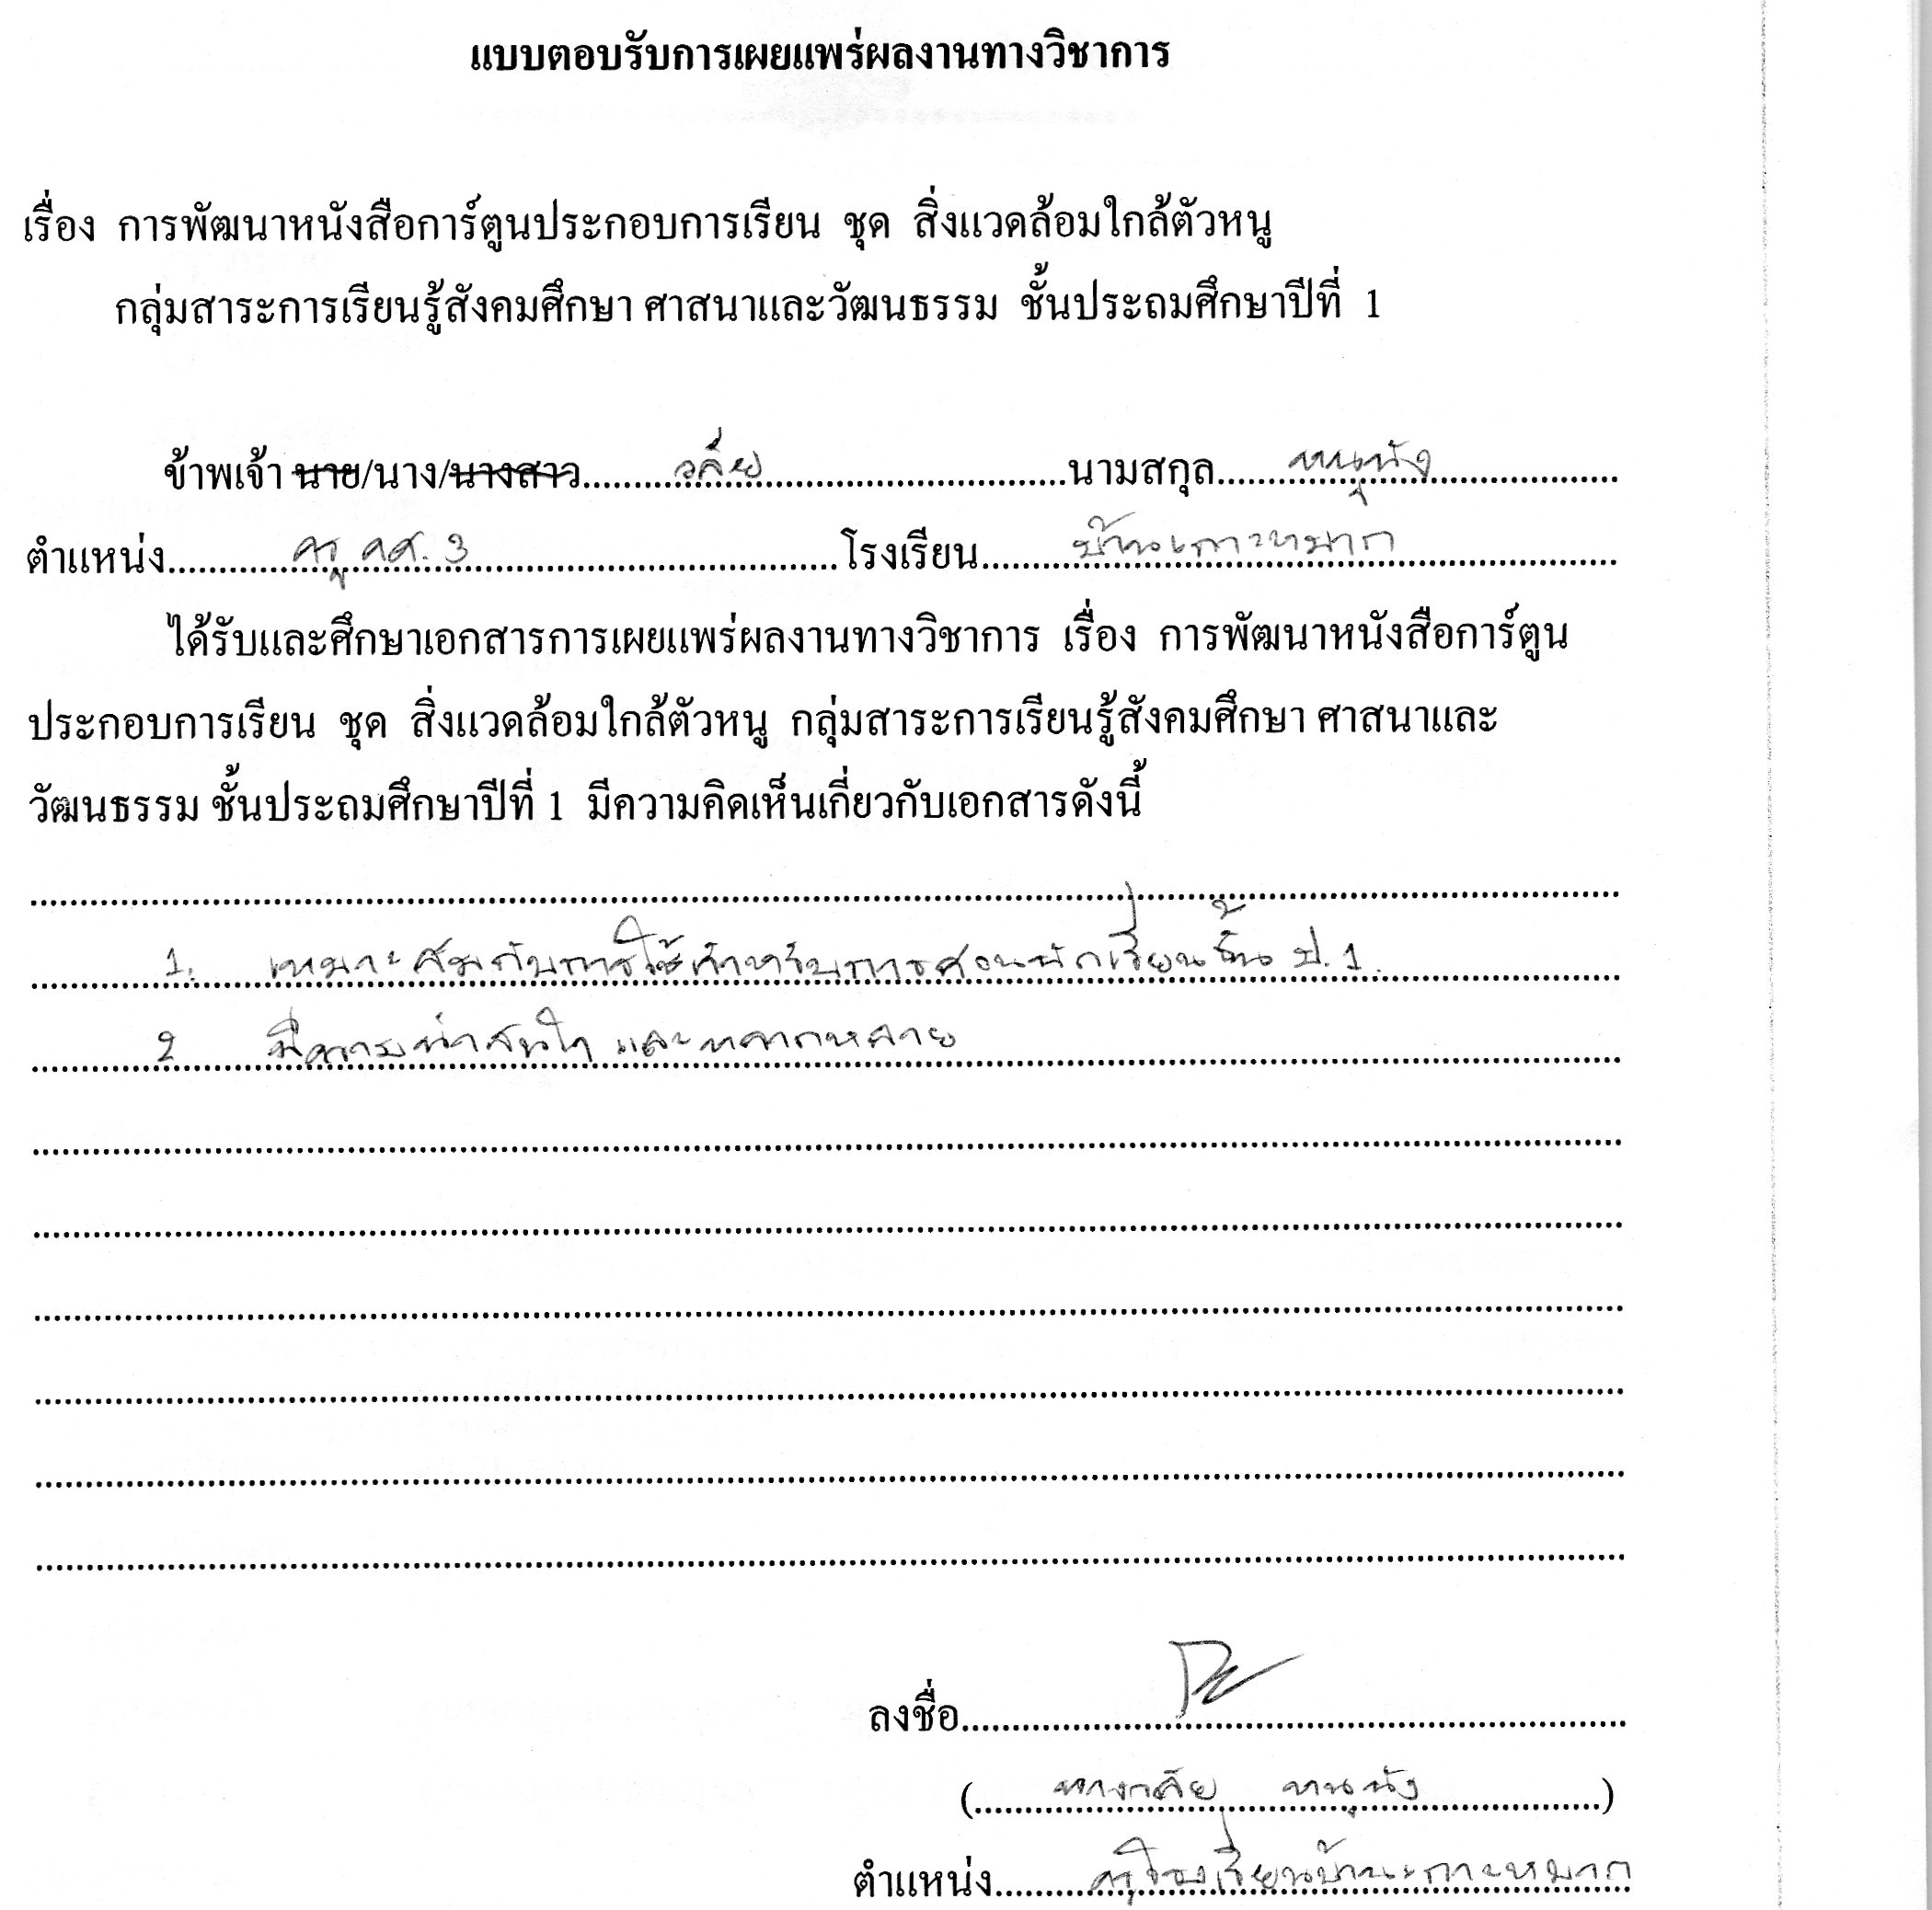 แบบตอบรับการเผยแพร่ผลงานทางวิชาการ
เรื่อง การพัฒนาหนังสือการ์ตูนประกอบการเรียน ชุด สิ่งแวดล้อมใกล้ตัวหนู
กลุ่มสาระการเรียนรู้สังคมศึกษา ศาสนาและวัฒนธรรม ชั้นประถมศึกษาปีที่ 1
ข้าพเจ้า นาย/นาง/นางสาว..........วลัย..........นามสกุล....................
ตำแหน่ง..........ครู คศ. 3..........โรงเรียน..........บ้านเกาะหมาก..........
ได้รับและศึกษาเอกสารการเผยแพร่ผลงานทางวิชาการ เรื่อง การพัฒนาหนังสือการ์ตูน
ประกอบการเรียน ชุด สิ่งแวดล้อมใกล้ตัวหนู กลุ่มสาระการเรียนรู้สังคมศึกษา ศาสนาและ
วัฒนธรรม ชั้นประถมศึกษาปีที่ 1 มีความคิดเห็นเกี่ยวกับเอกสารดังนี้
1. เหมาะสมกับการใช้สำหรับการสอนนักเรียนชั้น ป.1.
2 มีความน่าสนใจ และหลากหลาย
ลงชื่อ....................
(..........นางวลัย..........)
ตำแหน่ง..........ครูโรงเรียนบ้านเกาะหมาก